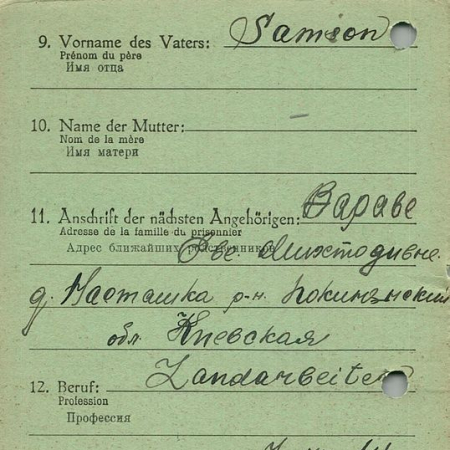 9. Vorname des Vaters: Samson
Prénom du père
Имя отца
10. Name der Mutter: –
Nom de la mère
Имя матери
11. Anschrift der nächsten Angehörigen: Вараве
Adresse de la famille du prisonnier
Адрес ближайших родственников
д. Насташка р-н.
обл Киевская
12. Beruf: Landarbeiter
Profession
Профессия